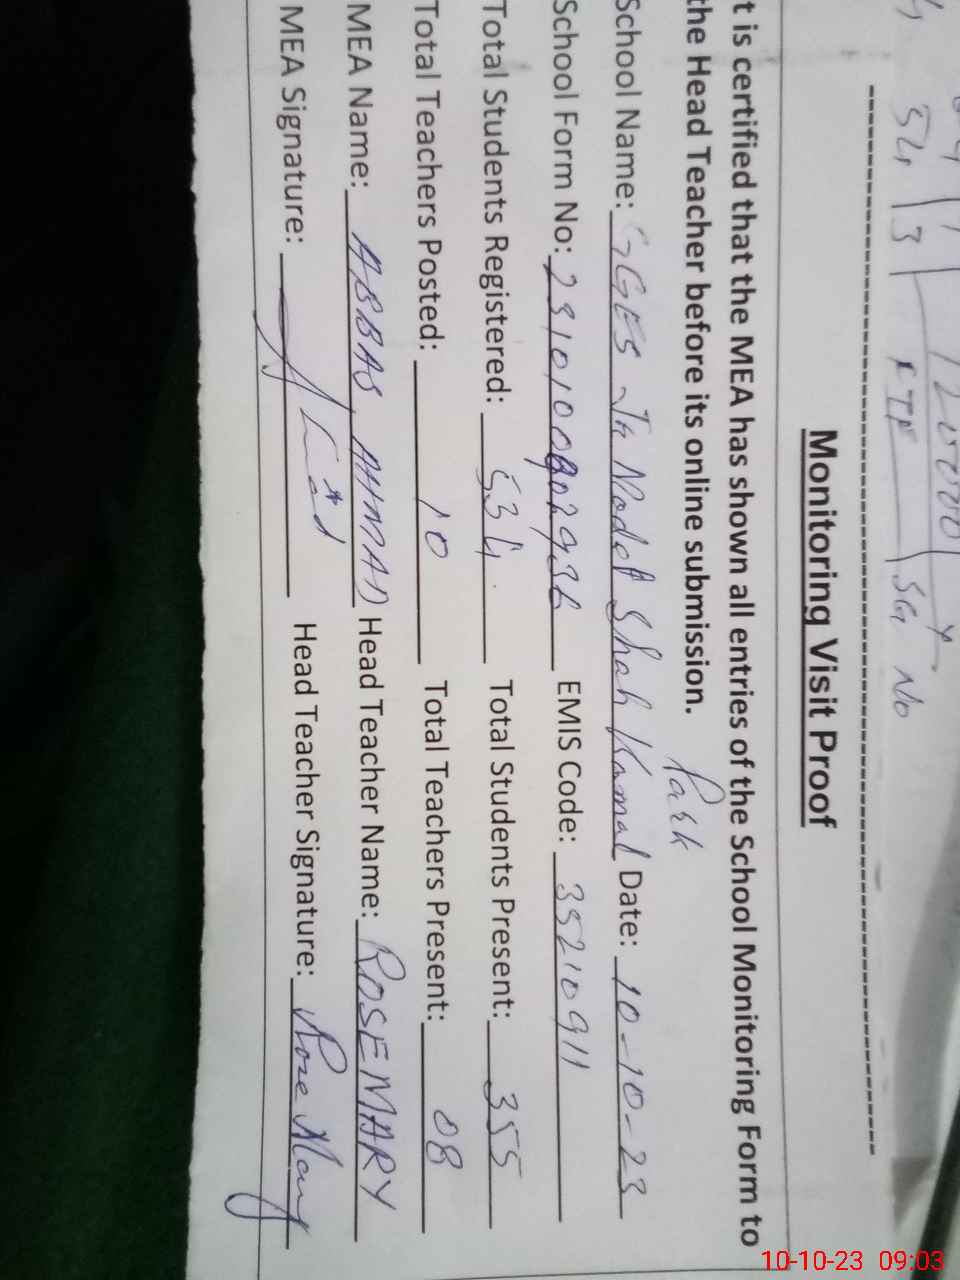 Monitoring Visit Proof
t is certified that the MEA has shown all entries of the School Monitoring Form to
the Head Teacher before its online submission.
Park
School Name: GGES Model Shah Kamal Date: 10-10-23
School Form No: EMIS Code: 35210911
Total Students Registered: 534 Total Students Present: 355
Total Teachers Posted: 10 Total Teachers Present: 08
MEA Name: ABBAS AHMAD Head Teacher Name: ROSEMARY
MEA Signature: Head Teacher Signature: Rose Mary
10-10-23 09:03